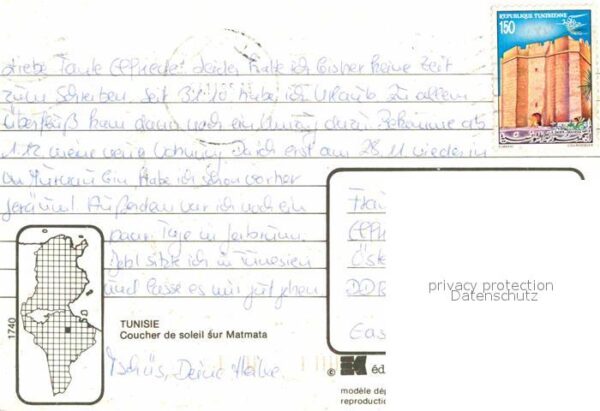 Liebe Tante Elfriede! Leider hatte ich bisher keine Zeit
zum Schreiben. Seit 31.10 habe ich Urlaub. Zu allem
Überfluß kam dann noch ein Umzug dazu. Bekomme ab
1.12 meine neue Wohnung. Da ich erst am 28.11 wieder in
bin habe ich schon vorher
geräumt. Außerdem war ich noch ein
paar Tage in
Jetzt sitze ich in Tunesien
und lasse es mir gut gehen
Tschüs, Deine Heike
REPUBLIQUE TUNISIENNE
150
Frau
Elfriede
DDR
privacy protection
Datenschutz
1740
TUNISIE
Coucher de soleil sur Matmata
© EK éd
modèle dép
reproductio